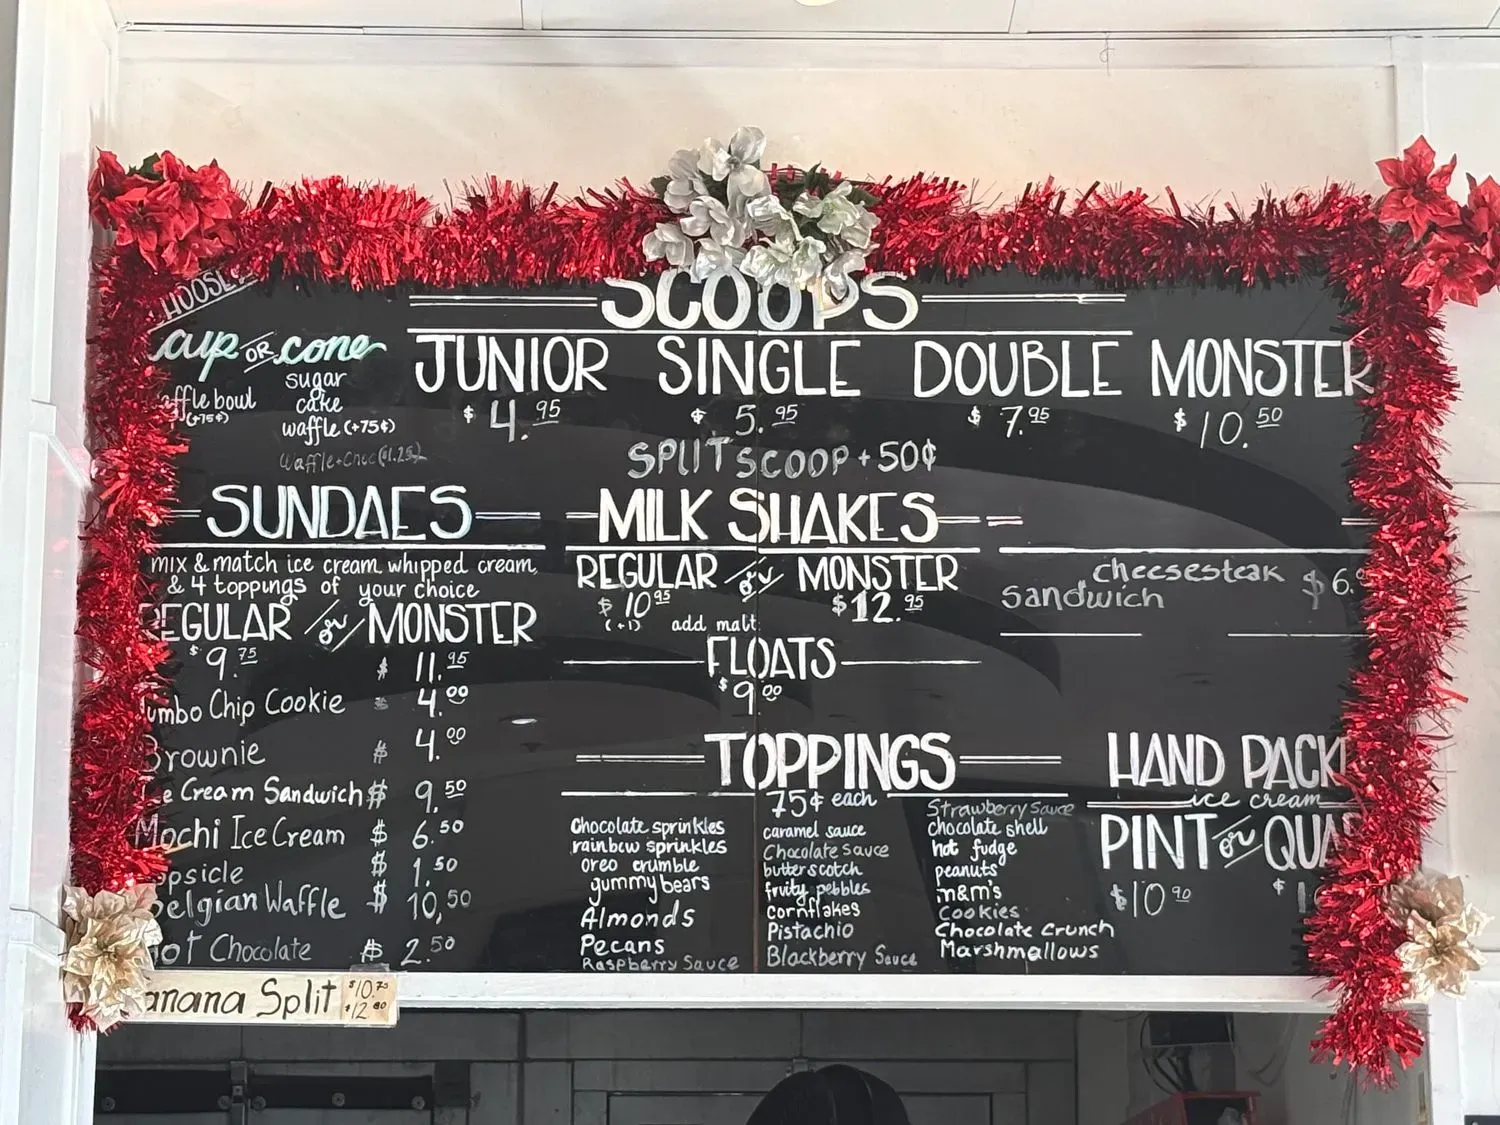 SCOOPS
cup OR cone
sugar
bowl
(+75¢)
cake
waffle (+75¢)
JUNIOR SINGLE DOUBLE MONSTER
$4.95 $5.95 $7.95 $10.50
SPLIT SCOOP + 50¢
SUNDAES
mix & match ice cream, whipped cream,
& 4 toppings of your choice
REGULAR or MONSTER
$9.75 $11.95
Jumbo Chip Cookie $4.00
Brownie $4.00
Ice Cream Sandwich $9.50
Mochi Ice Cream $6.50
Popsicle $1.50
Belgian Waffle $10.50
Hot Chocolate $2.50
Banana Split $10.75
$12.00
MILK SHAKES
REGULAR or MONSTER
$10.95 $12.95
(+1) add malt
FLOATS
$9.00
cheesesteak $6.
sandwich
TOPPINGS
75¢ each
Chocolate sprinkles
rainbow sprinkles
oreo crumble
gummy bears
Almonds
Pecans
Raspberry Sauce
caramel sauce
Chocolate Sauce
butterscotch
fruity pebbles
cornflakes
Pistachio
Blackberry Sauce
Strawberry Sauce
chocolate shell
hot fudge
peanuts
m&m's
Cookies
Chocolate Crunch
Marshmallows
HAND PACK
ice cream
PINT or QUA
$10.90 $1